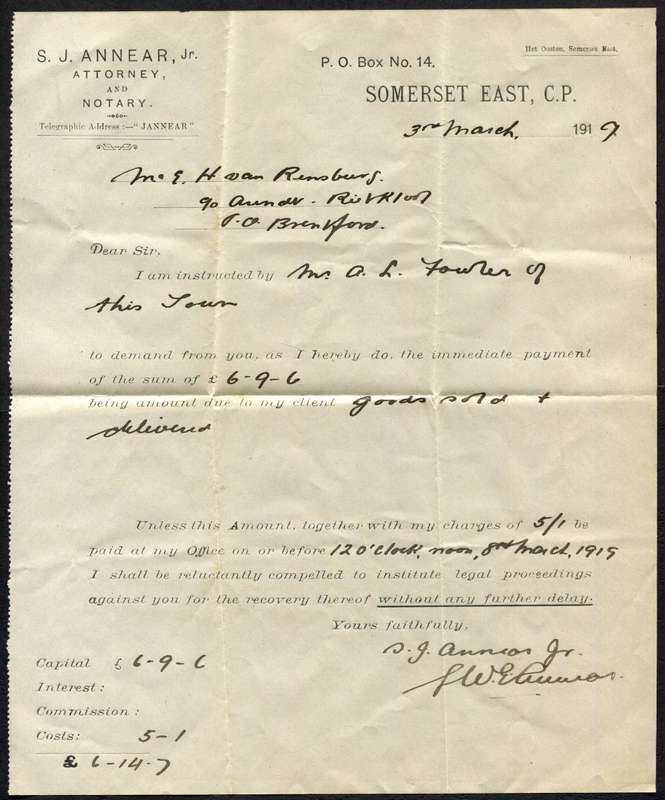 S. J. ANNEAR, Jr.
ATTORNEY,
AND
NOTARY.
Telegraphic Address:—"JANNEAR"
P. O. Box No. 14.
Het Oosten, Somerset East.
SOMERSET EAST, C.P.
3rd March, 1919
Mr E. H van Rensburg.
P.O. Brentford.
Dear Sir,
I am instructed by Mr. A. L. Fowler of
this Town
to demand from you, as I hereby do, the immediate payment
of the sum of £ 6-9-6
being amount due to my client goods sold +
delivered
Unless this Amount, together with my charges of 5/1 be
paid at my Office on or before 12 O'Clock, noon, 8rd March, 1919
I shall be reluctantly compelled to institute legal proceedings
against you for the recovery thereof without any further delay.
Yours faithfully,
S. J. Annear Jr.
Capital £ 6-9-6
Interest:
Commission:
Costs: 5-1
£ 6-14-7